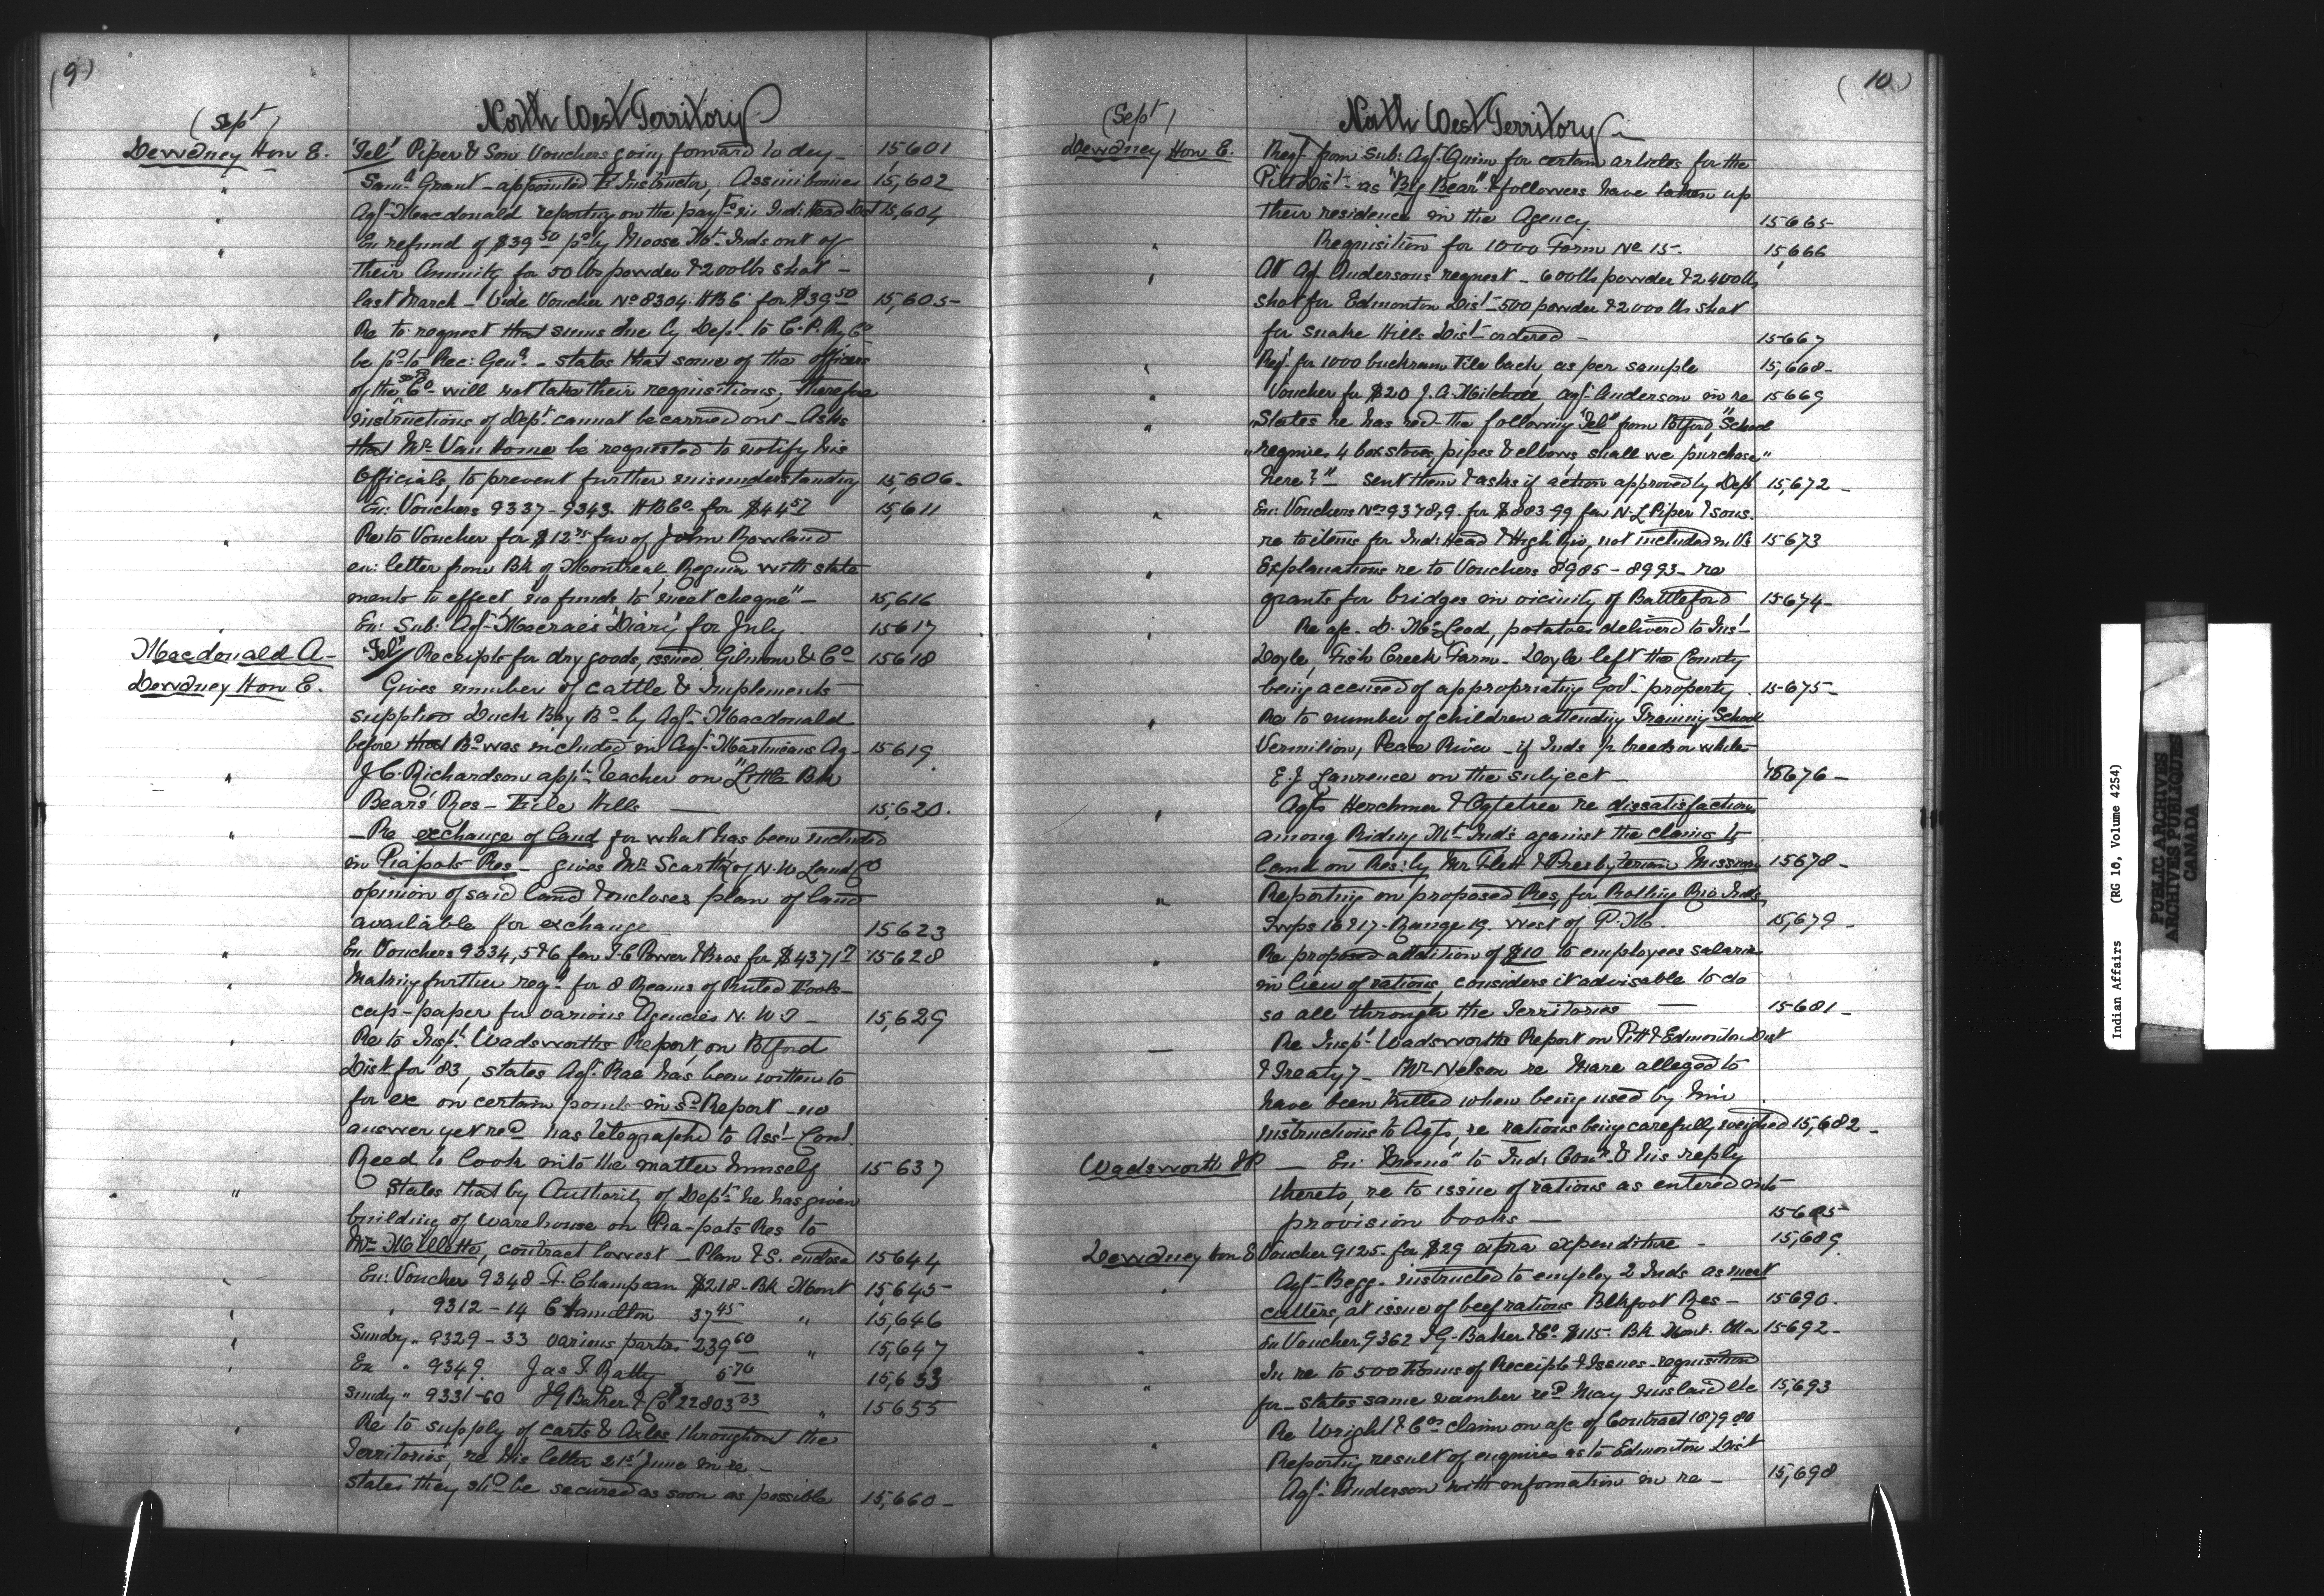 (9)
(Sept)
North West Territory
Dewdney Hon E. "Tel" Piper & Son Vouchers going forward to day - 15601
" Saml Grant - appointed F. Instructor, Assiniboines 15,602
" Agt Macdonald reporting on the payts in Ind: Head Dist 15,604
" En refund of $39 50 pd by Moose Mt Inds out of
their Annuity for 50 lbs powder & 200 lbs shot -
last March - Vide Voucher No 8304. HBC for $39 50 15,605-
" Re to request that sums due by Dept to C.P. Ry Co
be pd to Rec: Genl - states that some of the officers
of the sd Co will not take their requisitions, therefore
instructions of Dept cannot be carried out - Asks
that Mr Van Horne be requested to notify his
Officials, to prevent further misunderstanding 15,606-
En: Vouchers 9337-9343. HBCo for $44 57 15,611
" Re to Voucher for $12 75 fav of John Rowland
en: letter from Bk of Montreal, Regina with state
ments to effect "no funds to meet cheque" - 15,616
" En: Sub: Agt Macrae's "Diary" for July 15617
Macdonald A- "Tel" Receipts for dry goods, issued, Gilmour & Co 15618
Dewdney Hon E. Gives number of cattle & Implements
supplied Duck Bay Bd by Agt Macdonald
before that Bd was included in Agt Martineau's Ag- 15619
" J.C. Richardson appt teacher on "Little Blk
Bears' Res - File Hills 15,620.
" - Re exchange of land for what has been included
in Piapots Res - gives Mr Scarth of N.W. Land Co
opinion of said land, & encloses plan of land
available for exchange 15623
" En Vouchers 9334, 5 & 6 fav I.G. Power & Bros for $4371 15628
" Making further reqn for 8 Reams of Ruled Fools-
cap-paper for various Agencies N.W.T- 15,629
" Re to Inspr Wadsworths Report, on Btford
Dist for "83, states Agt Rae has been written to
for ex on certain points in sd Report - no
answer yet recd has telegraphd to Asst Comr
Reed to look into the matter himself 15637
" States that by Authority of Dept he has given
building of warehouse on Pia-pots Res to
Mr McIlette, contract lowest - Plan & S. enclosed 15644
" En: Voucher 9348 F. Champain $218 - Bk Mont 15,645
" " 9312-14 C Hamilton 37 45 " 15,646
" Sundry " 9329-33 various parties 239 60 " 15,647
" En " 9349. Jas F. Ratty 5 70 15,653
Sundy " 9331-60 IG Baker & Co $22803 33 " 15655
" Re to supply of carts & Axles throughout the
Territories, re his letter 21st June in re -
States they shd be secured as soon as possible 15,660-
(10)
(Sept)
North West Territory
Dewdney Hon E. Reqt from Sub: Agt Quinn for certain articles for the
Pitt Dist - as "Big Bear" & followers have taken up
their residence in the Agency. 15665
" Requisition for 1000 Form No 15. 15666
" At Agt Andersons request - 600lbs powder & 2400lb
shot for Edmonton Dist - 500 powder & 2000 lb shot
for snake Hills Dist - ordered - 15667
" Reqt for 1000 buckram File back, as per sample 15,668-
" Voucher for $20 J.A. Mitchell Agt Anderson in re 15669
" States he has recd the following "Tel" from Btford, "School
" requires 4 box stoves, pipes & elbows, shall we purchase"
here?" sent them & asks if action approved by Dept 15,672-
" En: Vouchers Nos 9378,9. for $883.99 fav N.L Piper & sons.
re to items for Ind: Head & High Riv, not included in Vs 15673
" Explanations re to Vouchers 8985-8993- re
grants for bridges in vicinity of Battleford 15674-
" Re a/c. D. McLeod, potatoes deliverd to Inst
Doyle, Fish Creek Farm - Doyle left the County
being accused of appropriating Govt property. 15-675-
" Re to number of children attending Training School
Vermilion, Peace River - if Inds ½ breeds or white-
E.J. Lawrence on the subject - 15676-
" Agts Herchmer & Ogletree re dissatisfaction
among Riding Mt Inds against the claims to
land on Res: by Mr Flett & Presbyterian Mission 15678-
" Reporting on proposed Res, for Rolling Riv Inds,
Twps 16 & 17 - Range 19. west of P.M. 15,679-
" Re proposed addition of $10 to employees salaries
in lieu of rations, considers it advisable to do
so all through the Territories - 15-681-
- Re Inspr Wadsworths Report on Pitt & Edmonton Dist
& Treaty 7 - Mr Nelson re Mare alleged to
have been killed when being used by him
instructions to Agts, re rations being carefully weighed 15,682-
Wadsworth T.P. - En: "Memo" to Ind: Comr & his reply
thereto, re to issue of rations as entered into
provision books - 15685
Dewdney Hon E Voucher 9125 for $29 extra expenditure - 15,689.
" Agt Begg - instructed to employ 2 Inds as meat
cutters, at issue of beef rations Blkfoot Res - 15690.
" En Voucher 9362 I G. Baker & Co $115. Bk Mont. 15692-
" In re to 500 Forms of Receipts & Issues requisition
for - states same number recd May mislaid etc 15,693
" Re Wright & Cos claim on a/c of Contract 1879 80
Reporting result of enquiries as to Edmonton Dist
Agt Anderson with information in re - 15,698
Indian Affairs (RG 10, Volume 4254)
PUBLIC ARCHIVES
ARCHIVES PUBLIQUES
CANADA